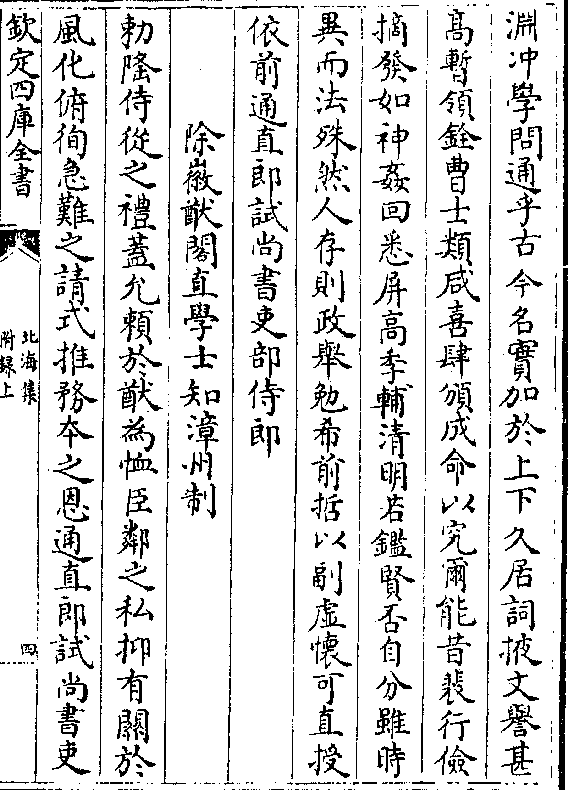 淵冲學問通乎古今名實加於上下久居詞掖文譽甚
高暫領銓曹士類咸喜肆頒成命以究爾能昔裴行儉
摘發如神姦回悉屏高季輔清明若鑑賢否自分雖時
異而法殊然人存則政舉勉希前括以副虛懷可直授
依前通直郎試尚書吏部侍郎
除徽猷閣直學士知漳州制
勅隆侍從之禮蓋允賴於猷為恤臣鄰之私抑有關於
風化俯徇急難之請式推務本之恩通直郎試尚書吏
欽定四庫全書
北海集
附録上
四